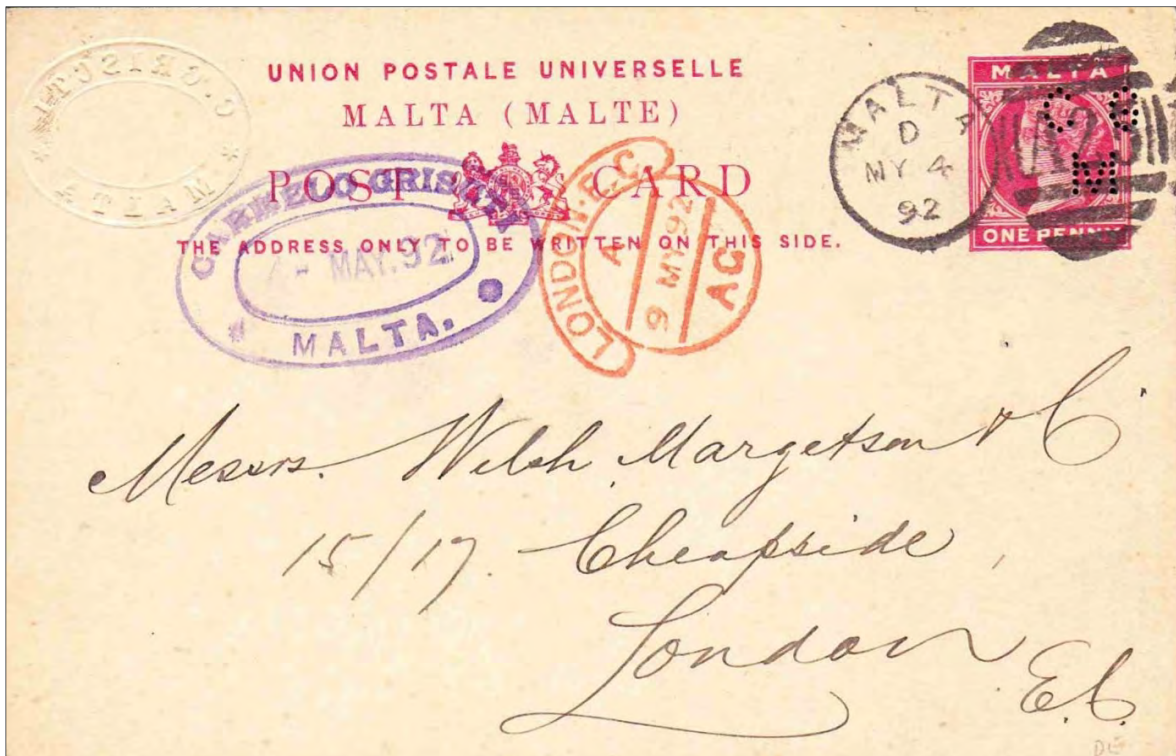 C. GRISCTI
* MALTA *
UNION POSTALE UNIVERSELLE
MALTA (MALTE)
POST CARD
THE ADDRESS ONLY TO BE WRITTEN ON THIS SIDE.
CARMELO
MAY.92
* MALTA.
LONDON.E.C.
A
9 MY 92
AG
MALTA
D
MY 4
92
MALTA
G
M
ONE PENNY
Messrs. Welsh, Margetson & C
15/17. Cheapside,
London
E.C.